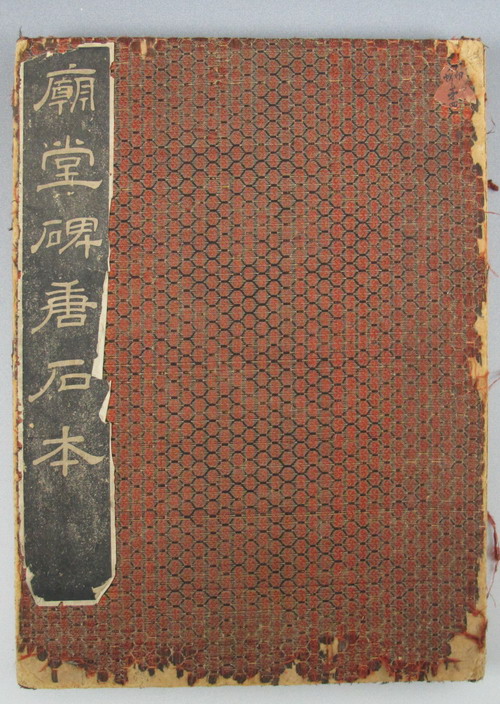 廟堂碑唐石本